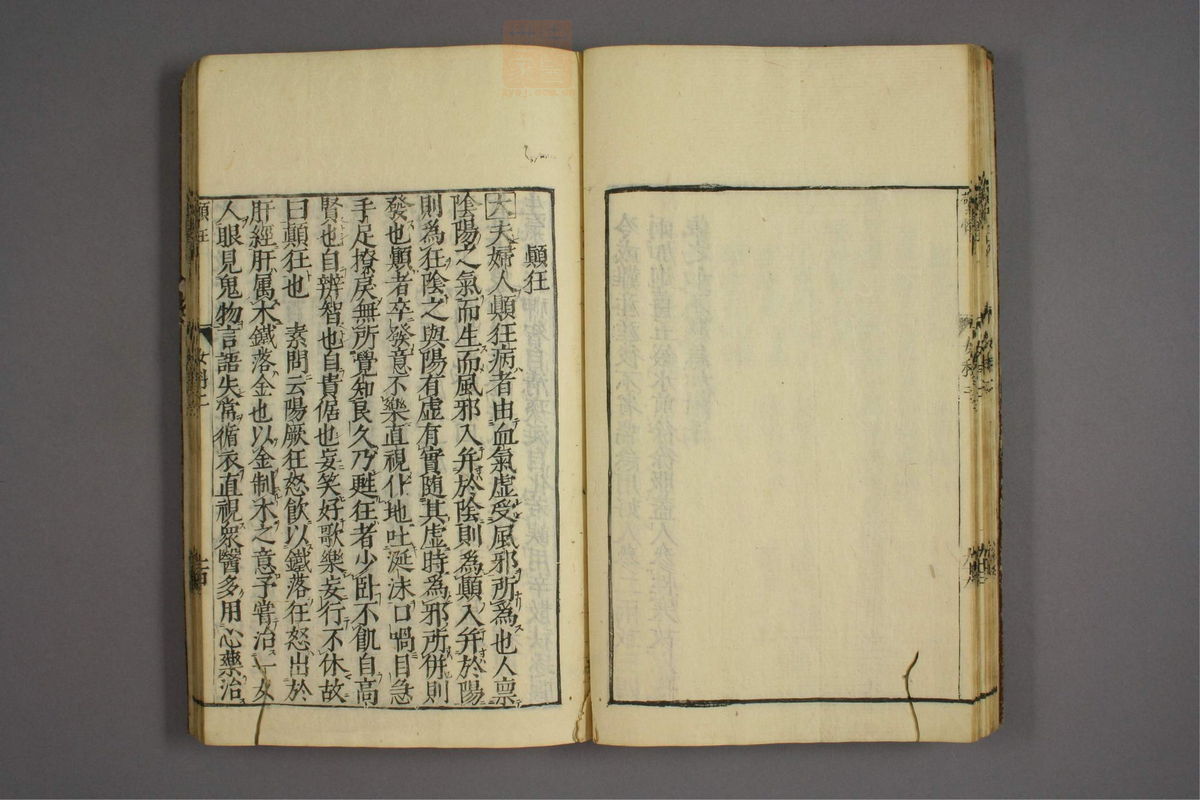 顛狂
大夫婦人顛狂病者由血氣虛受風邪所為也人禀
陰陽之氣而生而風邪入并於陰則為顛入并於陽
則為狂陰之與陽有虛有實隨其虛時為邪所併則
發也顛者卒發意不樂直視仆地吐涎沫口喎目急
手足撩戾無所覺知良久乃甦狂者少卧不飢自高
賢也自辨智也自貴倨也妄笑好歌樂妄行不休故
曰顛狂也 素問云陽厥狂怒飲以鐵落狂怒出於
肝經肝属木鐵落金也以金制木之意予嘗治一女
人眼見鬼物言語失常循衣直視衆醫多用心藥治
顛狂
女科二